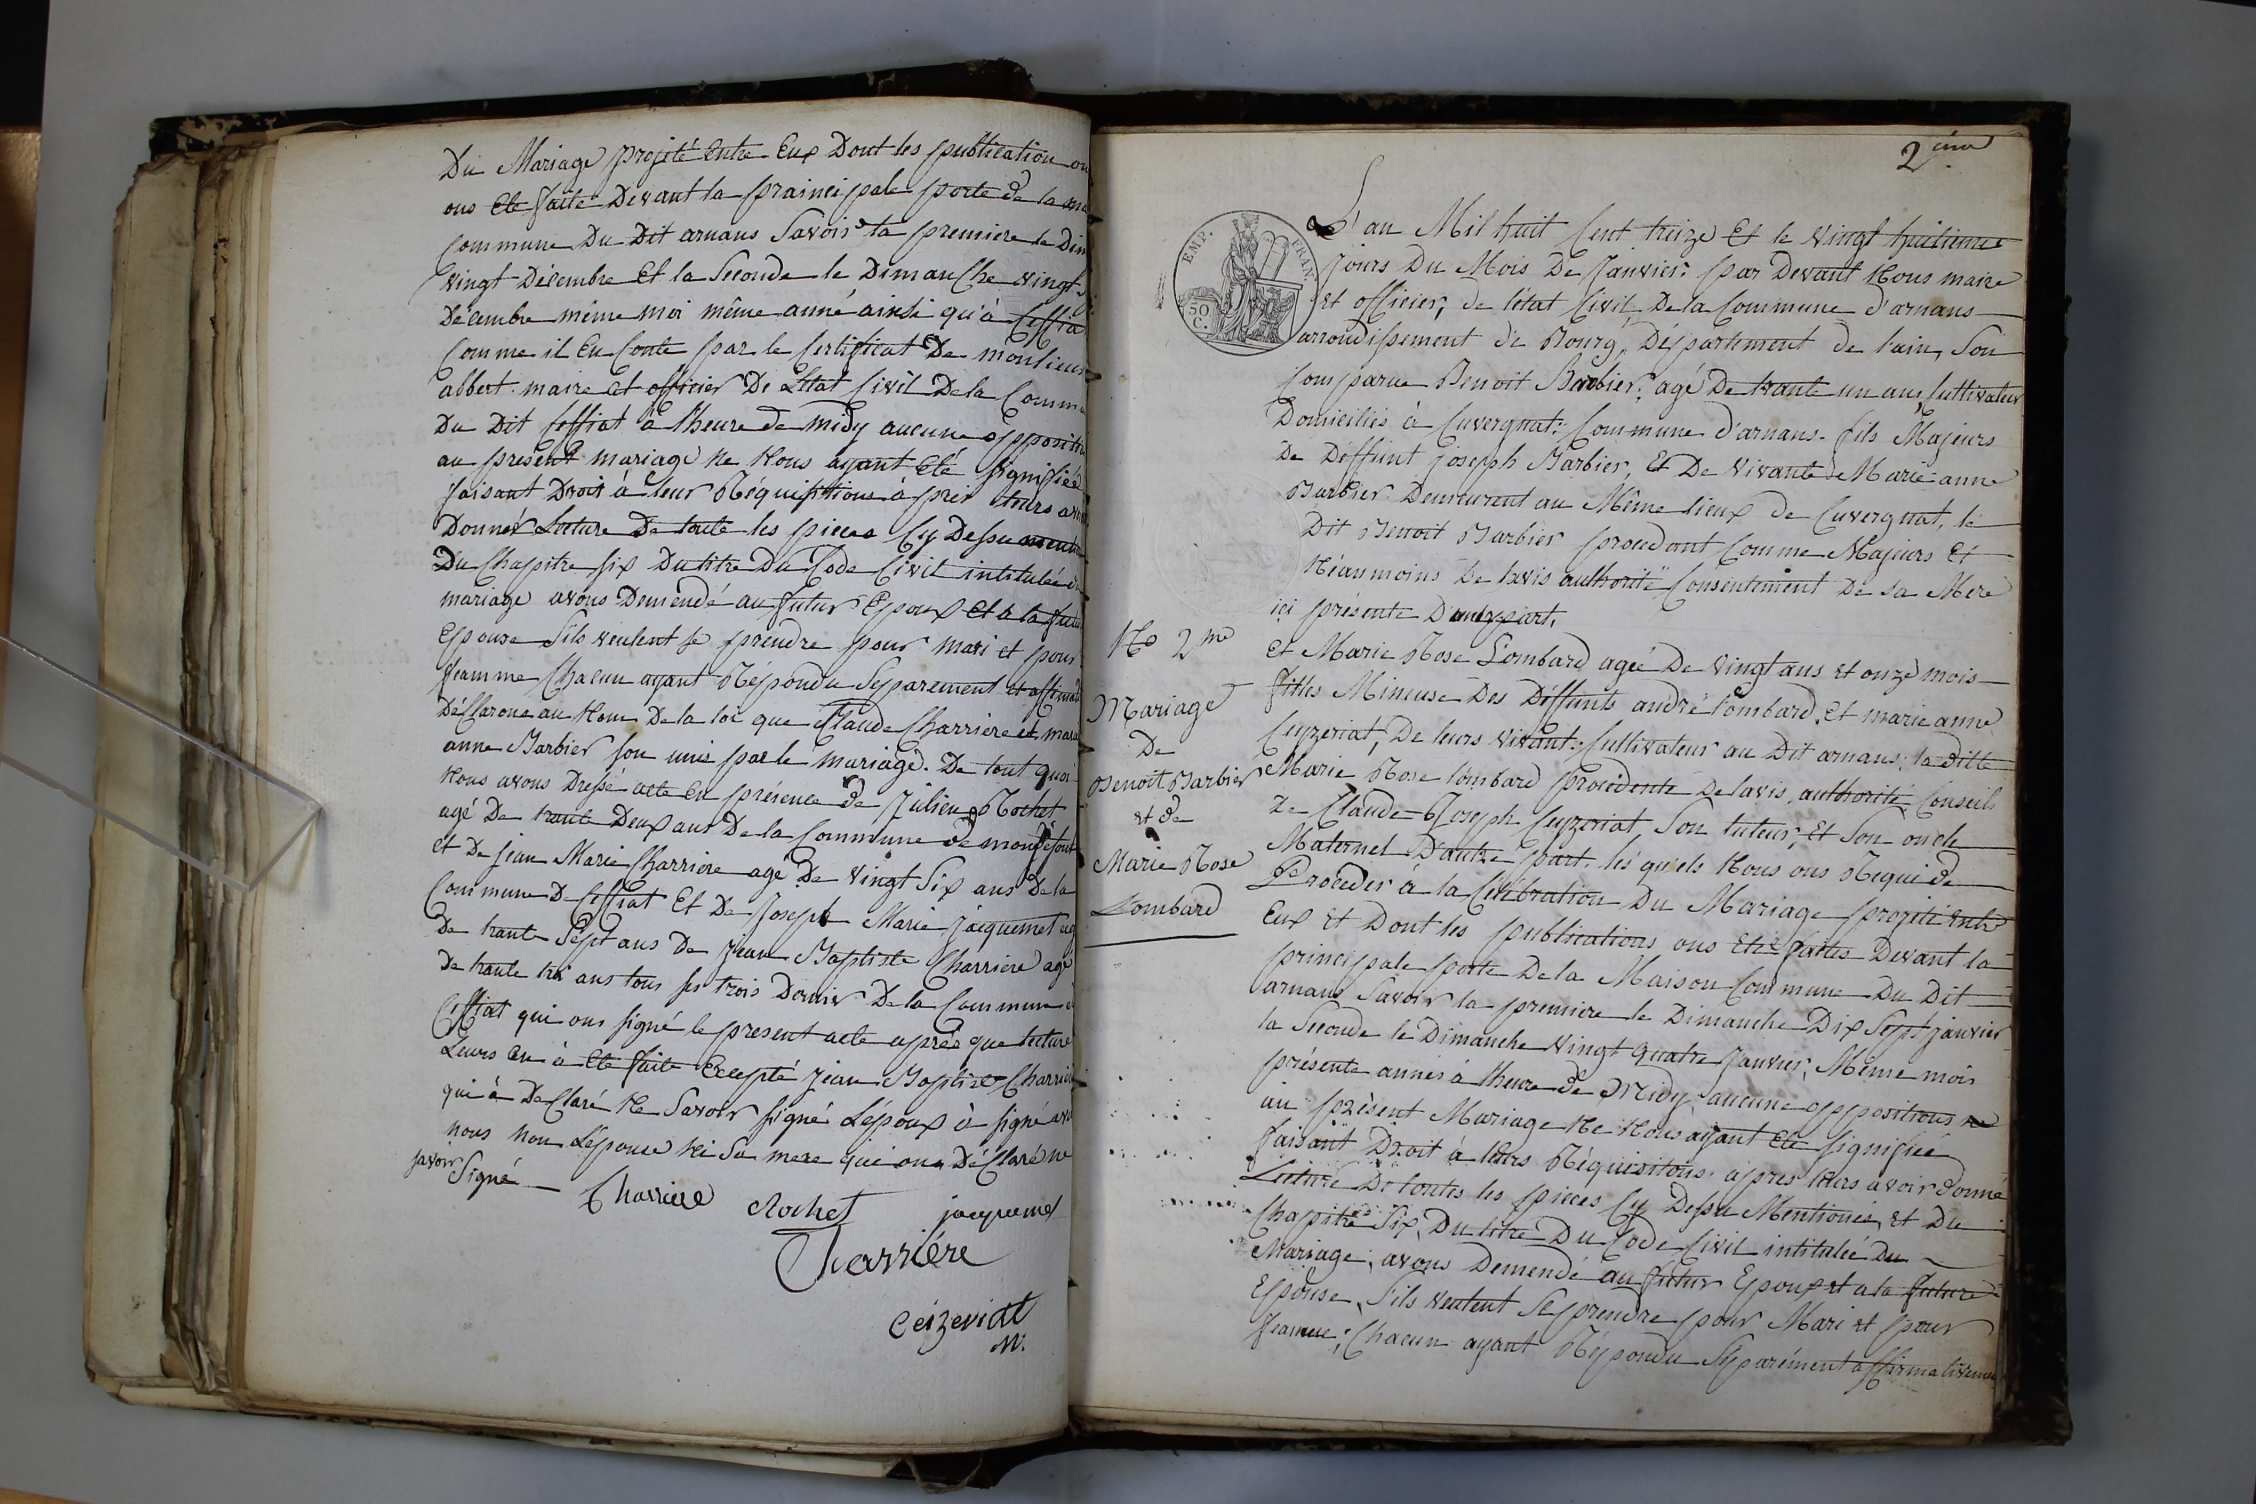 Du Mariage projeté entre Eux Dont les publication on
ons Eté faite Devant la prainci pale porte de la ma
Commune Du Dit arnans Savoir la premiere le Dim
vingt Décembre et la Seconde le Dimanche vingt
Décembre même moi même anné ainsi qu'à Ceffia
Comme il en Conte par le Certificat De monsieur
albert maire et officier De L'état Civil De la Commu
Du Dit Ceffiat à l'heure de midy aucune oppositio
au present mariage ne Nous ayant Eté Signifiée
faisant Droit à leur Réquisitions à prés leurs avoir
Donner Lecture De toute les pieces Cy Dessu menti
Du Chapitre six Du titre Du Code Civil intitulée d
mariage avons Demendé au futur Epoux et à la futu
Epouse Sils veulent se prendre pour mari et pour
feamme Chacun ayant Répondu Séparement et affirmat
Déclarons au Nom De la loi que Claude Charriere et mari
anne Barbier son unis par le mariage. De tout quoi
Nous avons Dressé acte en présence de Julien Rochet
agé De trante Deux ans De la Commune de
et De jean Marie Charriere agé De vingt Six ans De la
Commune De Ceffiat et De Joseph Marie jacquemet ag
De trante Sépt ans De Jean Baptiste Charriere agé
De trante tris ans tous ses trois Dernier De la Commune d
Ceffiat qui ons signé le present acte aprés que lecture
Leurs en à Eté faite Excepté Jean Baptiste Charrie
qui à Declaré Ne Savoir signé L'époux à signé avec
nous non L'épouse Ni Sa mere qui ons Déclaré ne
savoir Signé
Charriere Rochet jacquemet
Charriére
Ceizeriat
M.
2 ême
EMP. FRAN.
50 C.
L'an Mil huit Cent treize et le vingt huitieme
Jours Du Mois De Janvier par Devant Nous maire
et officier, de l'état Civil De la Commune d'arnans
arrondissement de Bourg, Département de l'ain, Son
Comparue Benoit Barbier, agé De trante un ans, Cultivateur
Domiciliés à Cuvergnat, Commune d'arnans. fils Majeurs
De Déffunt joseph Barbier, et De Vivante Marie anne
Barbier Demeurent au Même lieux de Cuvergnat, le
Dit Benoit Barbier procedont Comme Majeurs et
Néanmoins De lavis authorité Consentiment De sa Mere
ici présente D'une part.
No 2me
Mariage
De
Benoit Barbier
et de
Marie Rose
Lombard
et Marie Rose Lombard ageé De vingt ans et onze mois
filles Mineuse Des Déffunts andré lombard, et marie anne
Ceyzeriat, De leurs vivant Cultivateur au Dit arnans; la ditte
Marie Rose lombard procédente De lavis, authorité, Conseils
De Claude Joseph Ceyzeriat, Son tuteur, et Son oncle
Maternel D'autre part. les'quels Nous ons Requi de
Proceder à la Célébration Du Mariage projeté entre
Eux et Dont les publications ons été faites Devant la
principale porte De la Maison Commune Du Dit
arnans Savoir la premiere le Dimanche Dix Sept janvier
la Seconde le Dimanche Vingt quatre Janvier, Même mois
présente annés à l'heure de Midy, aucune oppositions
au présent Mariage Ne Nous ayant été Signifiée
faisant Droit à leurs Réquisitons. àpres leurs avoir donné
Lecture De toutes les pieces Cy Dessu Mentionés, et Du
Chapitre Six, Du titre Du Code Civil intitulée Du
Mariage, avons Demendé au futur Epoux et a la future
Epouse, Sils veulent Se prendre pour Mari et pour
feamme; Chacun ayant Répondu Séparément affirmativemen